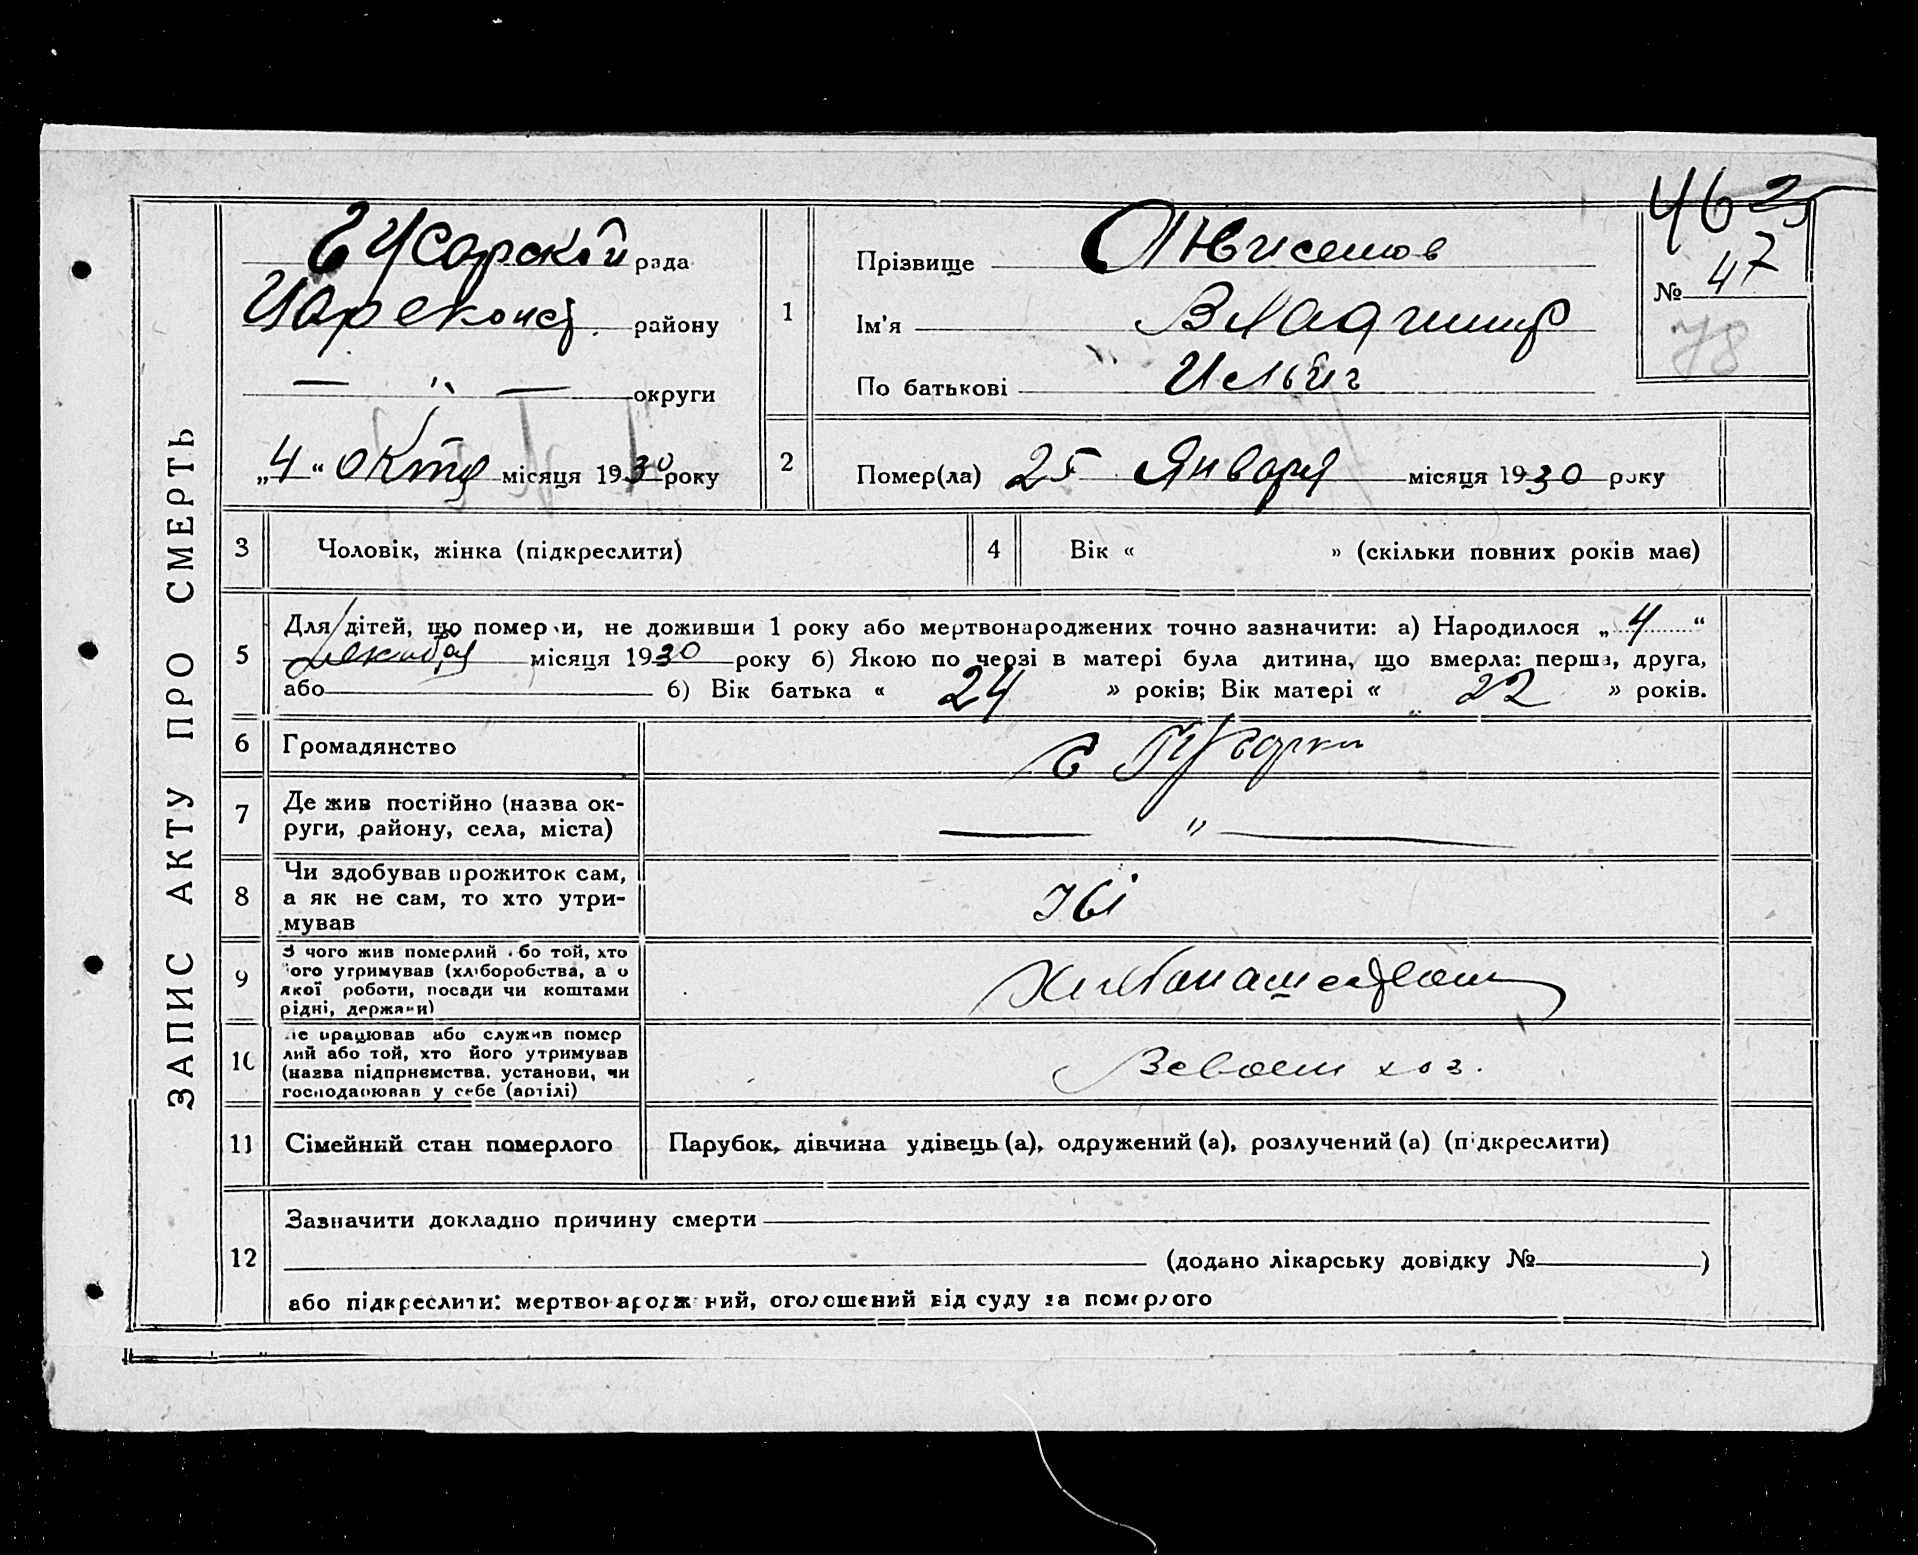 4625
рада
Прізвище
№ 47
78
району
1
Ім'я Владимир
округи
По батькові Ильич
„4“ окт місяця 1930 року
2
Помер(ла) 25 Января місяця 1930 року
ЗАПИС АКТУ ПРО СМЕРТЬ
3 Чоловік, жінка (підкреслити)
4 Вік « » (скільки повних років має)
5
Для дітей, що померли, не доживши 1 року або мертвонароджених точно зазначити: а) Народилося „ 4 “
Декабря місяця 1930 року б) Якою по черзі в матері була дитина, що вмерла: перша, друга,
або б) Вік батька « 24 » років; Вік матері « 22 » років.
6 Громадянство
7
Де жив постійно (назва ок-
руги, району, села, міста) — " —
8
Чи здобував прожиток сам,
а як не сам, то хто утри-
мував
9
З чого жив померлий або той, хто
його утримував (хліборобства, а о
якої роботи, посади чи коштами
рідні, держави)
10
Де працював або служив помер
лий або той, хто його утримував
(назва підприємства, установи, чи
господарював у себе (артілі)
11 Сімейний стан померлого
Парубок, дівчина удівець (а), одружений (а), розлучений (а) (підкреслити)
12
Зазначити докладно причину смерти
(додано лікарську довідку № )
або підкреслити: мертвонароджений, оголошений від суду за померлого